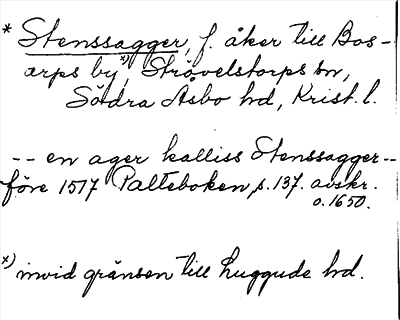 * Stenssagger, f. åker till Bos-
arps by x), Strövelstorps sn,
Södra Asbo hd, Krist. l.
-- en ager kalliss Stenssagger--
före 1517 Palteboken, s. 137. avskr.
o. 1650.
x) invid gränsen till Luggude hd.